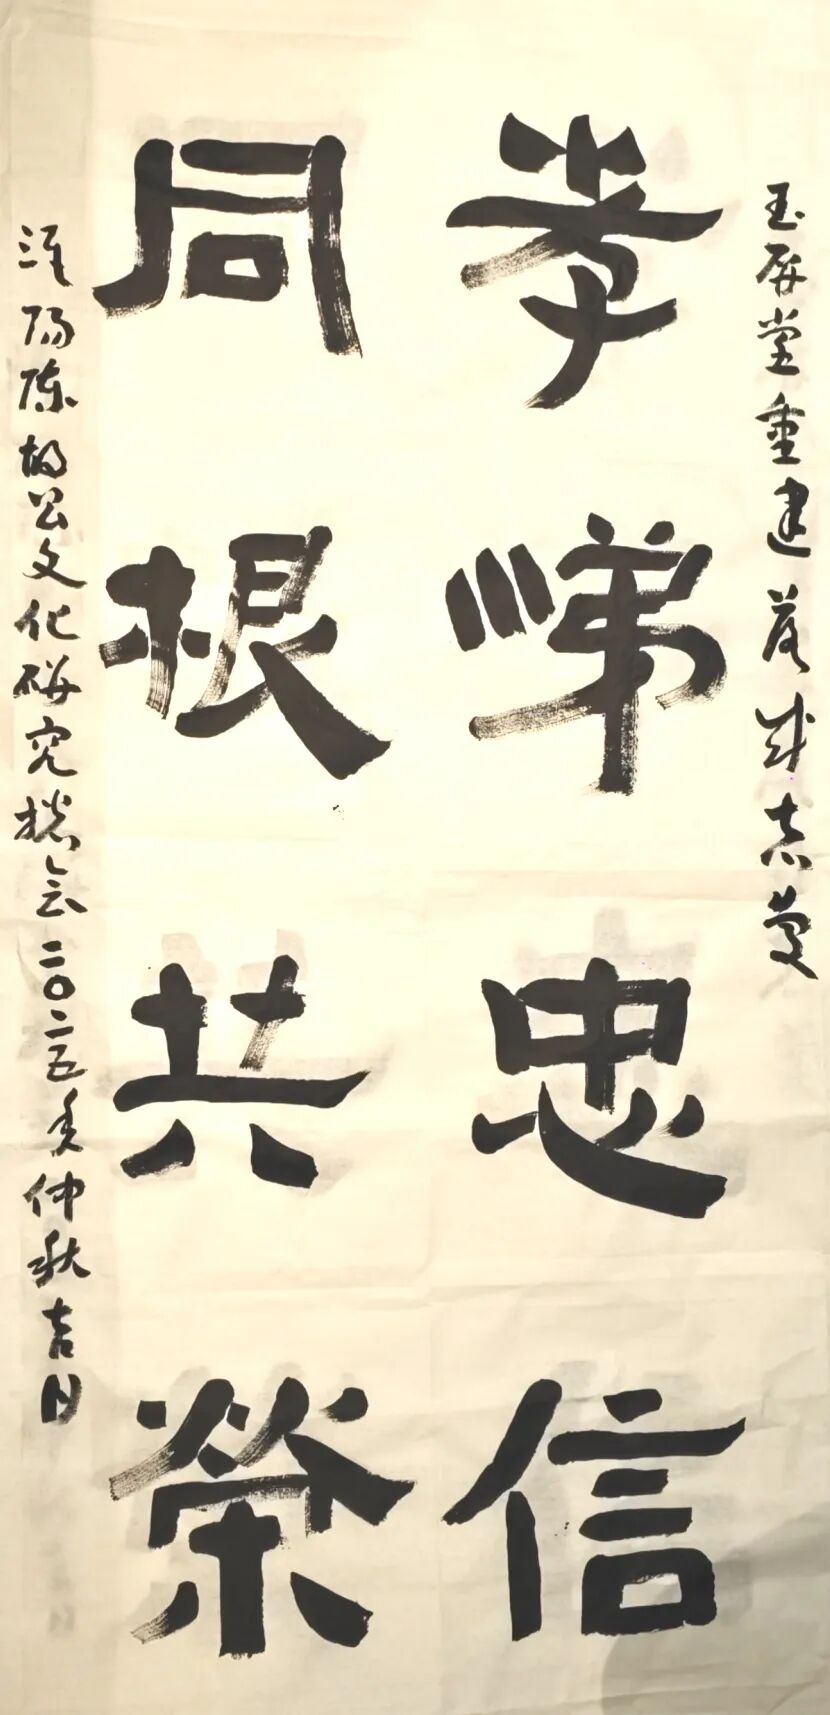 玉屏堂重建落成志庆
孝悌忠信
同根共榮
淮阳陈胡公文化研究总会二〇二五年仲秋吉日